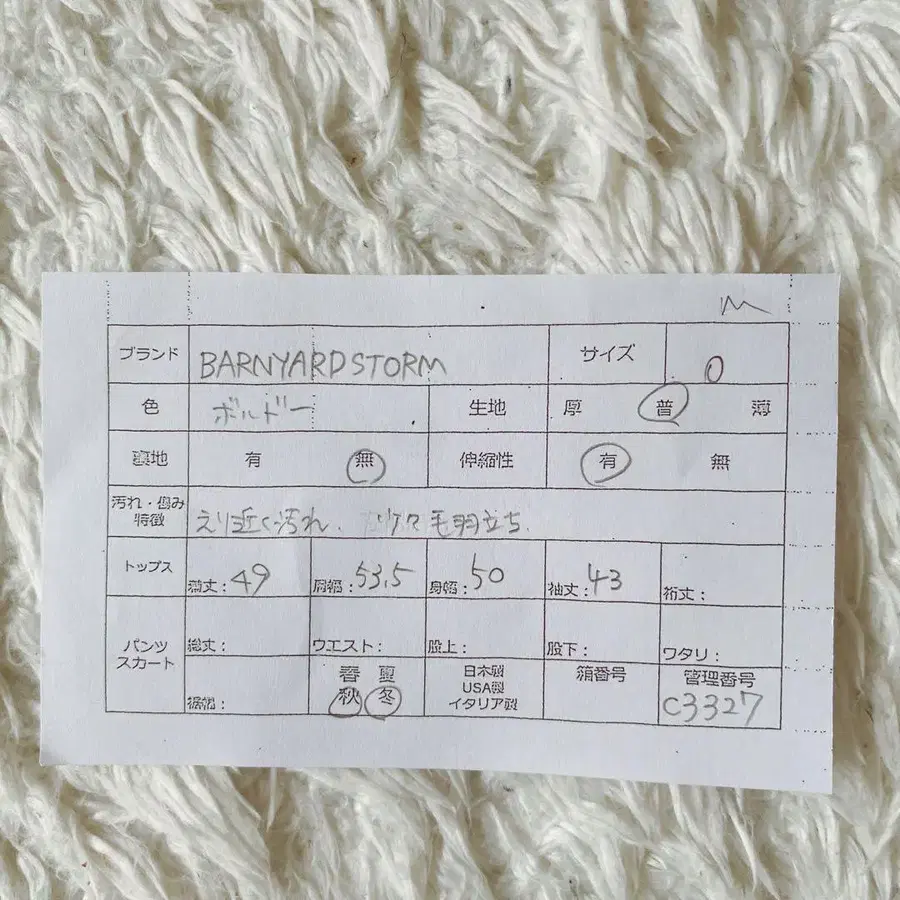 M
ブランド BARNYARDSTORM サイズ 0
色 ボルドー 生地 厚 普 薄
裏地 有 無 伸縮性 有 無
汚れ・傷み
特徴 えり近く汚れ、 毛羽立ち
トップス 着丈:49 肩幅:53.5 身幅:50 袖丈:43 裄丈:
パンツ
スカート 総丈: ウエスト: 股上: 股下: ワタリ:
裾幅: 春 夏 秋 冬 日本製 USA製 イタリア製 箱番号 管理番号
C3327